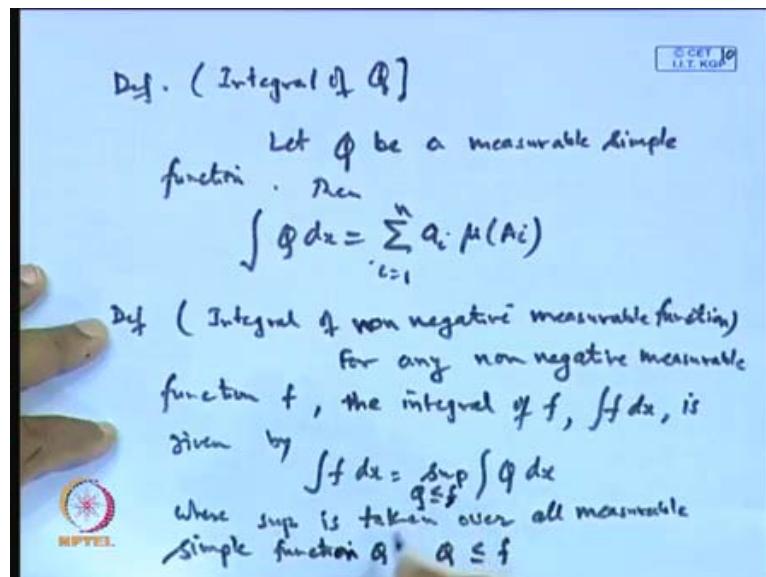 © CET
I.I.T. KGP
10
Def. (Integral of φ]
Let φ be a measurable simple
function. Then
∫ φ dx = Σ_{i=1}^{n} a_i μ(A_i)
Def (Integral of non negative measurable function)
For any non negative measurable
function f, the integral of f, ∫f dx, is
given by
∫ f dx = sup_{φ≤f} ∫ φ dx
where sup is taken over all measurable
simple function φ, φ ≤ f
NPTEL